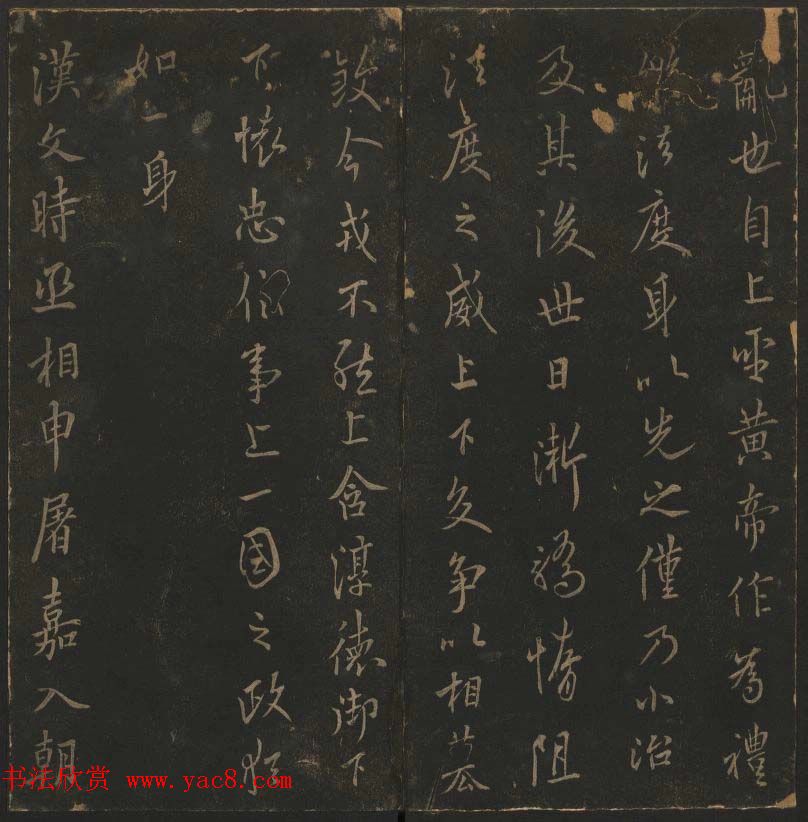 亂也自上聖黃帝作為禮
法度身以先之僅乃小治
及其後世日漸驕惰阻
法度之威上下交爭以相
今戎不然上含淳德御下
下懷忠信事上一國之政猶
如一身
漢文時丞相申屠嘉入朝
书法欣赏 www.yac8.com